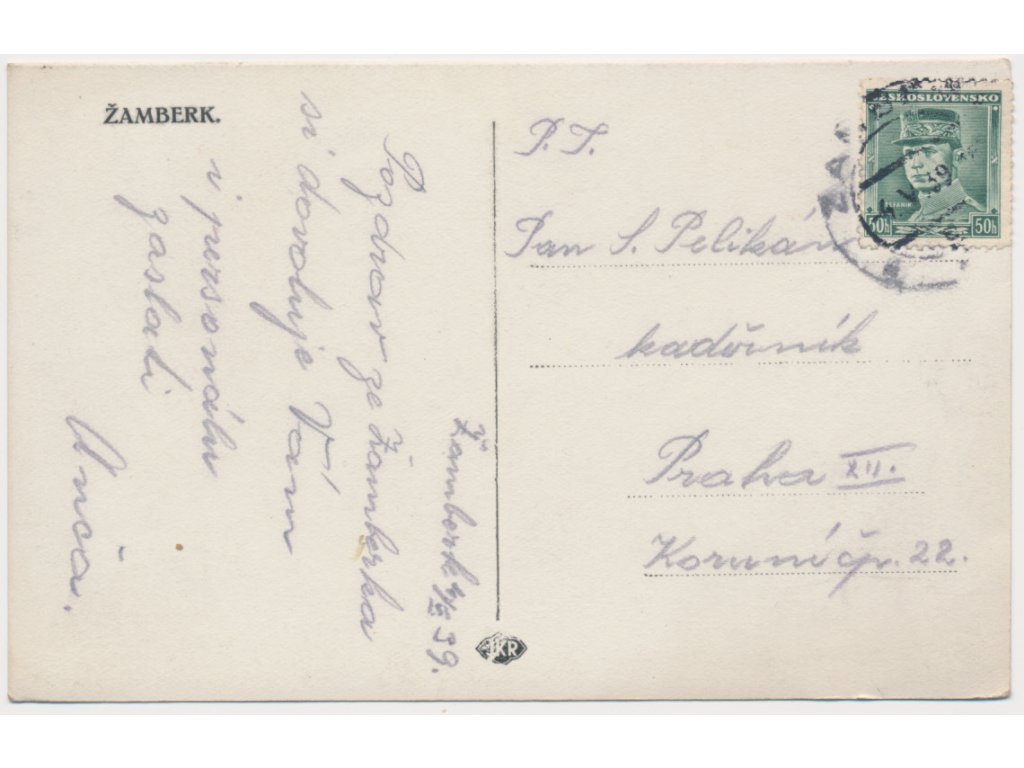 ŽAMBERK.
Žamberk 4/V 39.
Pozdrav ze Žamberka
si dovoluje Vám
i personálu
zaslati
P. T.
Pan S. Pelikán
kadeřník
Praha XII.
Korunní čp. 22.
ČESKOSLOVENSKO
ŠTEFÁNIK
50h 50h
ŽAM
V. 39
JKR